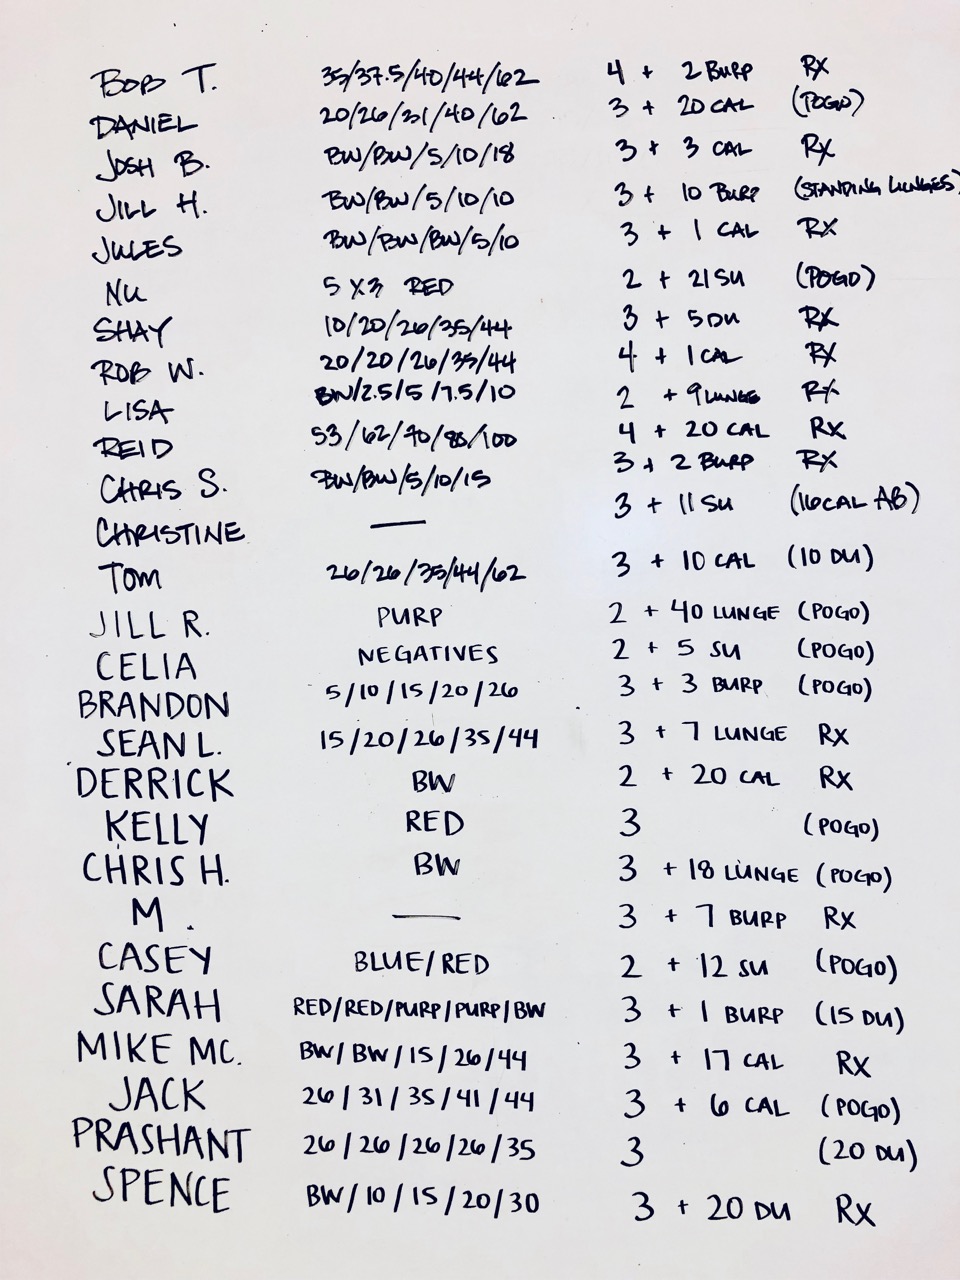 BOB T. 35/37.5/40/44/62 4 + 2 BURP RX
DANIEL 20/26/31/40/62 3 + 20 CAL (POGO)
JOSH B. BW/BW/5/10/18 3 + 3 CAL RX
JILL H. BW/BW/5/10/10 3 + 10 BURP (STANDING LUNGES)
JULES BW/BW/BW/5/10 3 + 1 CAL RX
NU 5 X3 RED 2 + 21 SU (POGO)
SHAY 10/20/26/35/44 3 + 5 DU RX
ROB W. 20/20/26/35/44 4 + 1 CAL RX
LISA BW/2.5/5/7.5/10 2 + 9 LUNGE RX
REID 53/62/70/88/100 4 + 20 CAL RX
CHRIS S. BW/BW/5/10/15 3 + 2 BURP RX
CHRISTINE — 3 + 11 SU (16 CAL AB)
TOM 26/26/35/44/62 3 + 10 CAL (10 DU)
JILL R. PURP 2 + 40 LUNGE (POGO)
CELIA NEGATIVES 2 + 5 SU (POGO)
BRANDON 5/10/15/20/26 3 + 3 BURP (POGO)
SEAN L. 15/20/26/35/44 3 + 7 LUNGE RX
DERRICK BW 2 + 20 CAL RX
KELLY RED 3 (POGO)
CHRIS H. BW 3 + 18 LUNGE (POGO)
M. — 3 + 7 BURP RX
CASEY BLUE/RED 2 + 12 SU (POGO)
SARAH RED/RED/PURP/PURP/BW 3 + 1 BURP (15 DU)
MIKE MC. BW/BW/15/26/44 3 + 17 CAL RX
JACK 26/31/35/41/44 3 + 6 CAL (POGO)
PRASHANT 26/26/26/26/35 3 (20 DU)
SPENCE BW/10/15/20/30 3 + 20 DU RX